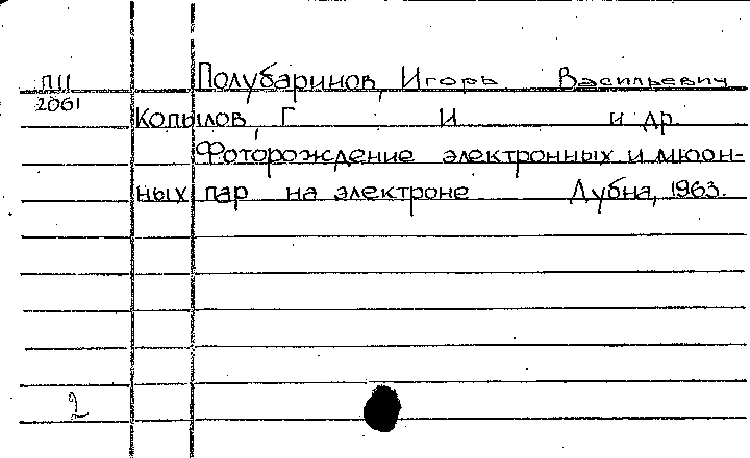 ПШ Полубаринов, Игорь Васильевич
2061
Копылов, Г. И. и др.
Фоторождение электронных и мюон-
ных пар на электроне Дубна, 1963.
2